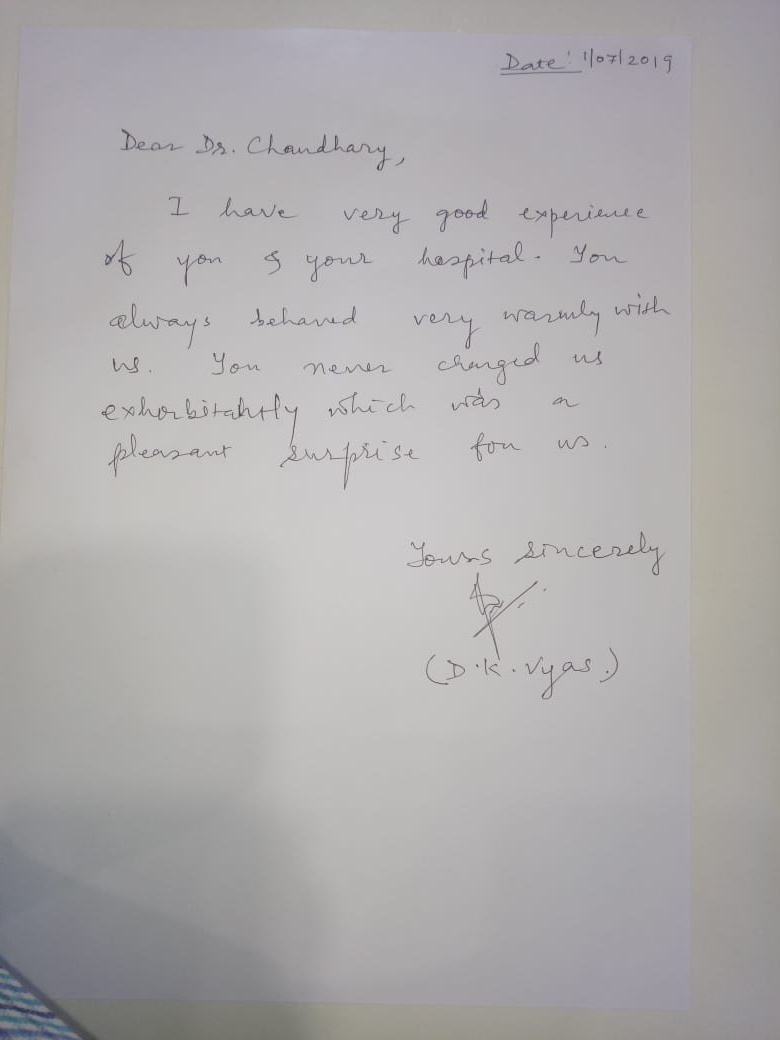 Date: 1/07/2019
Dear Dr. Chaudhary,
I have very good experience
of you & your hospital. You
always behaved very warmly with
us. You never charged us
exhorbitantly which was a
pleasant surprise for us.
Yours sincerely
(D.K. Vyas.)